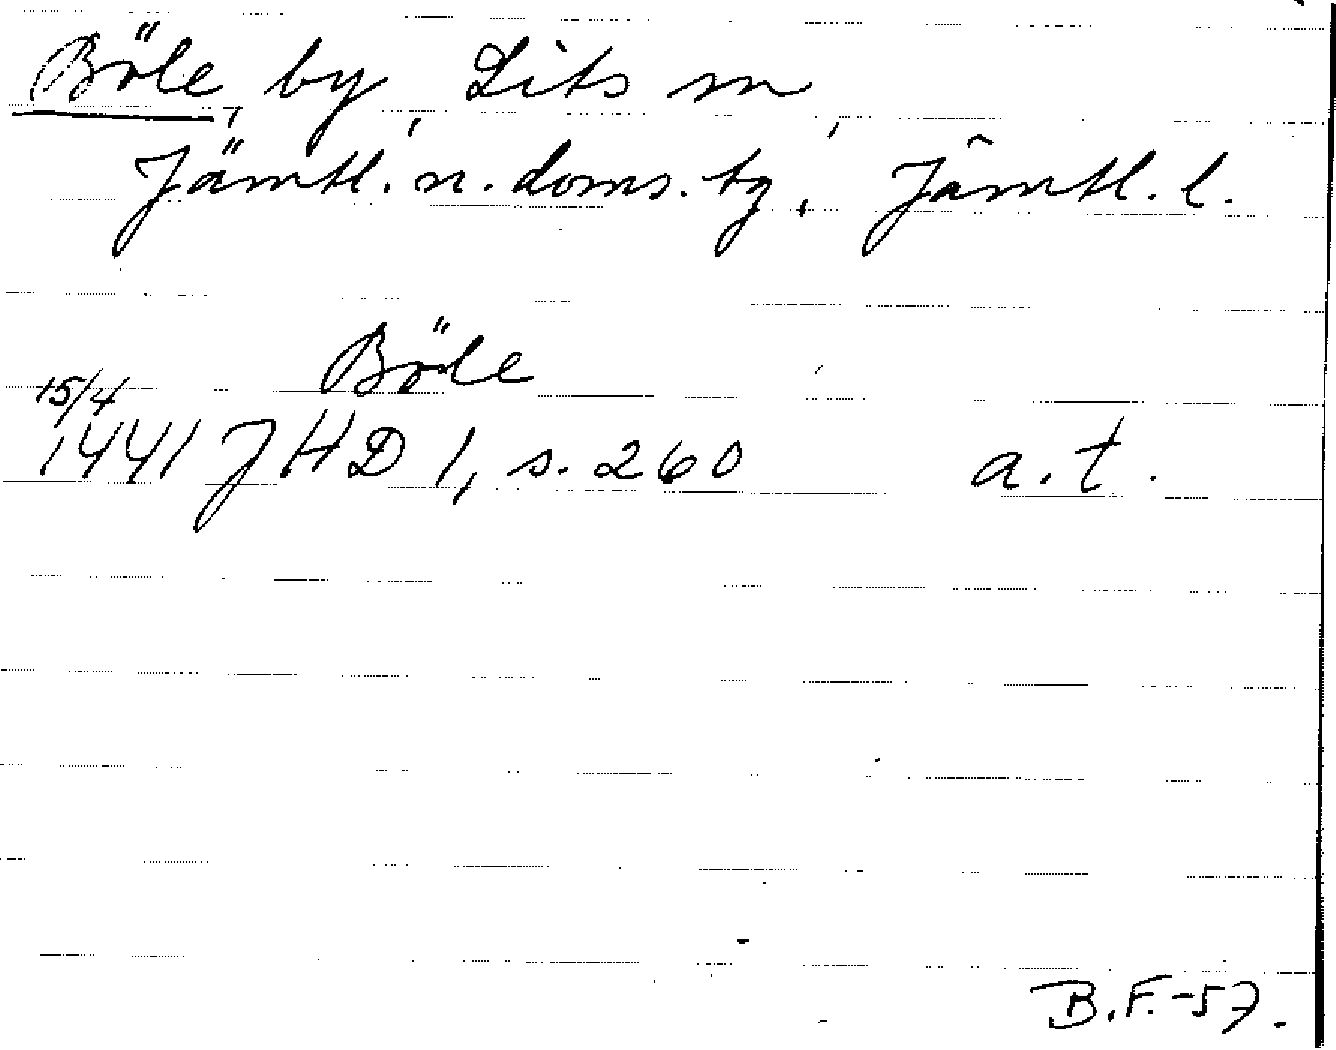 Böle, by, Lits sn,
Jämtl. n. doms. tg, Jämtl. l.
Böle
15/4
1441 JHD 1, s. 260 a. t.
B.F.-57.